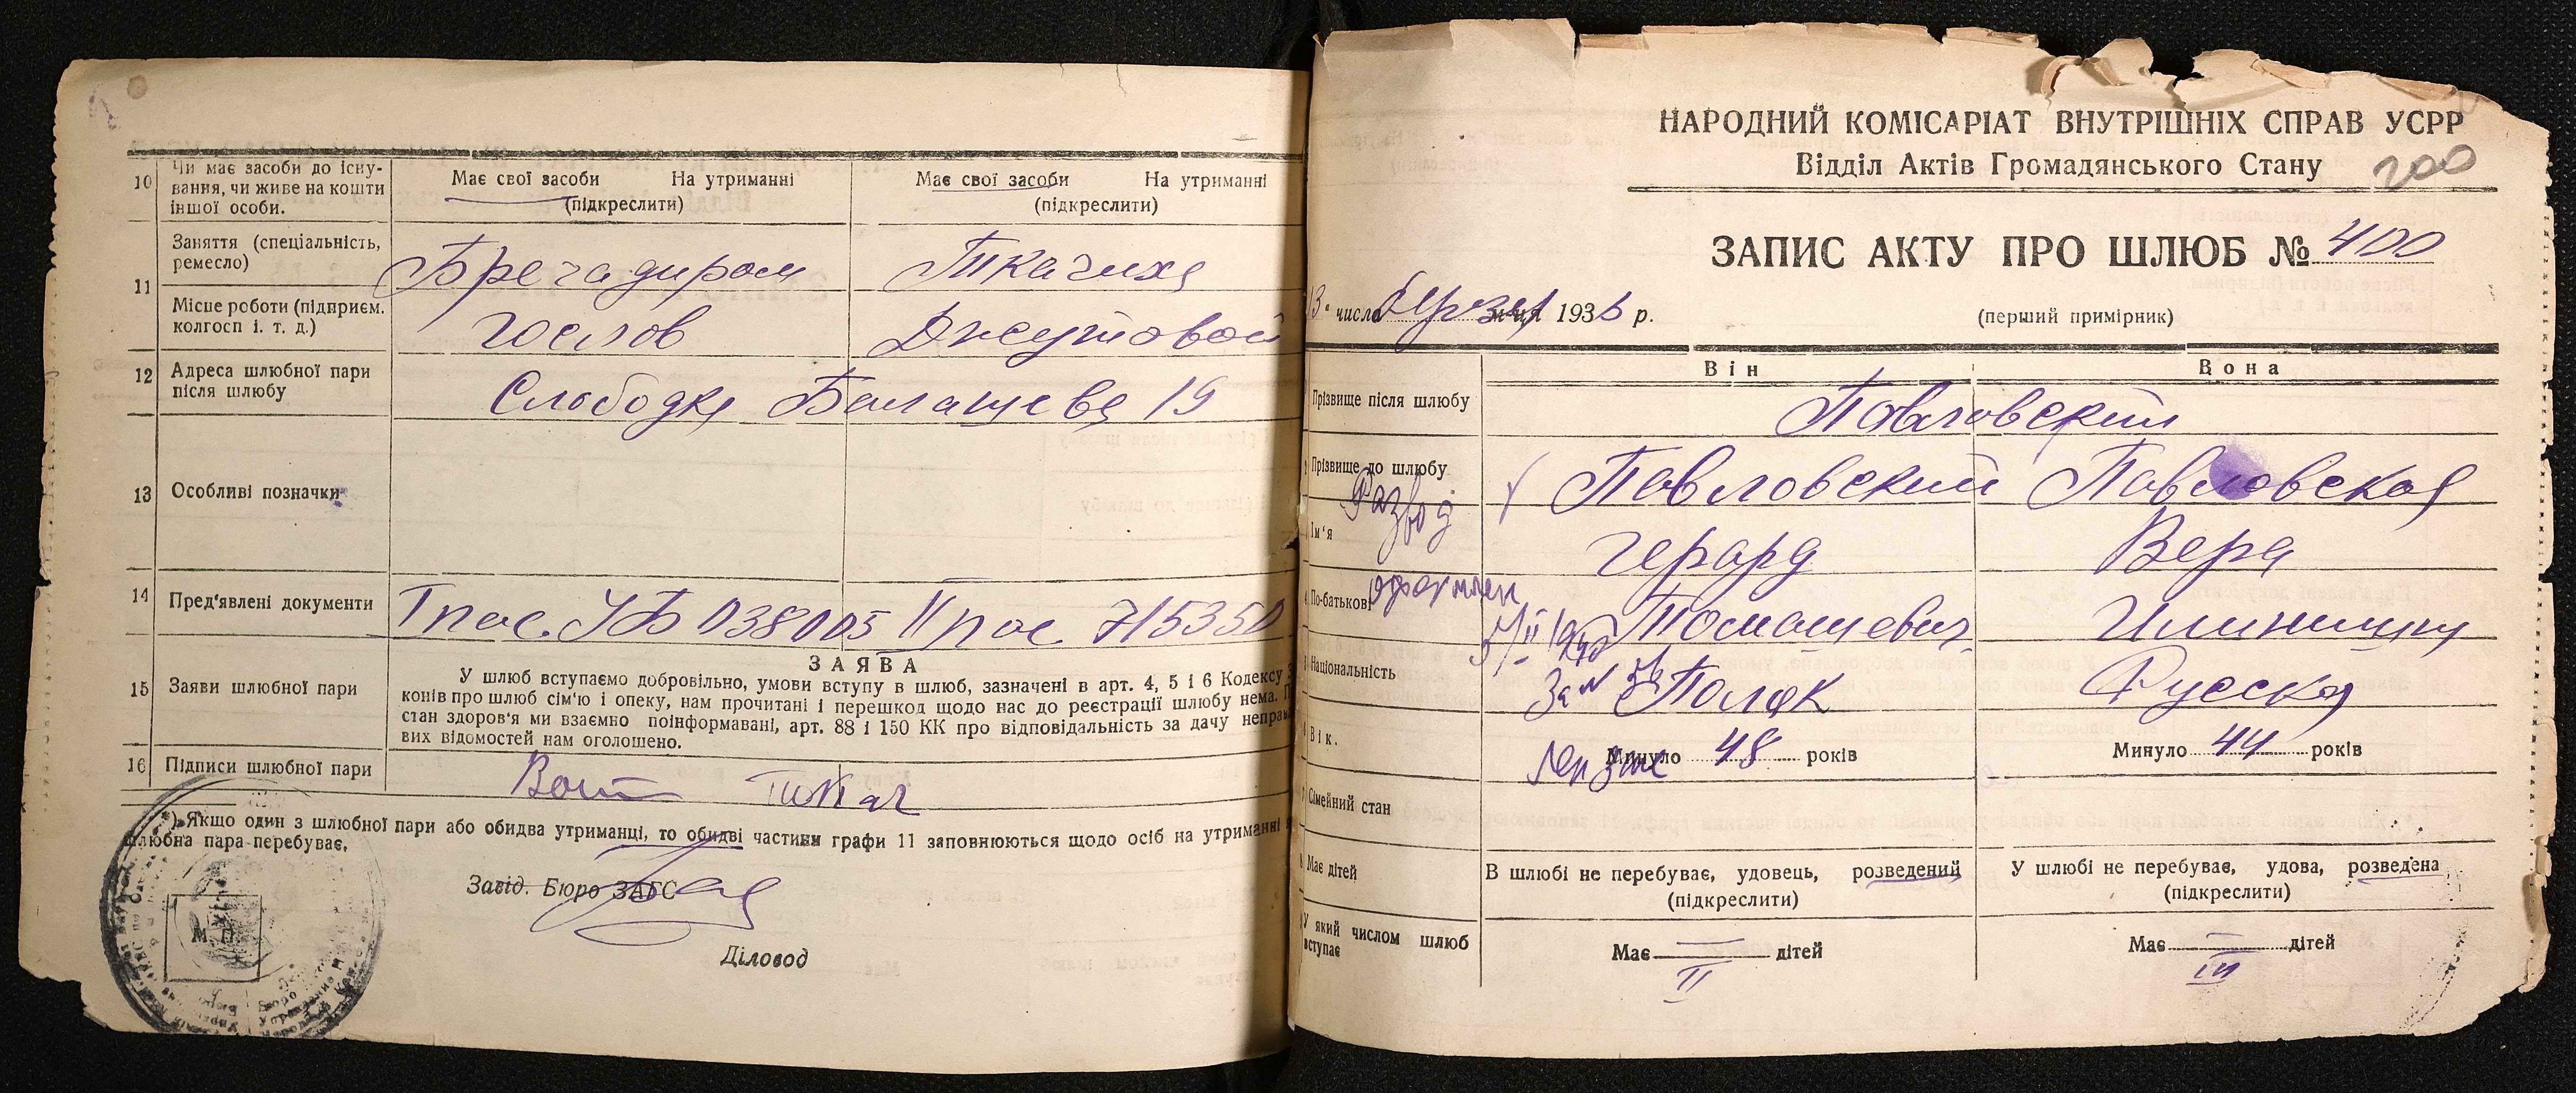 10 Чи має засоби до існу-
вання, чи живе на кошти
іншої особи.
Має свої засоби На утриманні
(підкреслити)
Має свої засоби На утриманні
(підкреслити)
11 Заняття (спеціальність,
ремесло)
Ткачиха
Місце роботи (підприєм.
колгосп і. т. д.)
Джутовой
12 Адреса шлюбної пари
після шлюбу
Слободка Балашева 19
13 Особливі позначки
14 Пред'явлені документи
I пас. УБ 038005 II пас. 715350
15 Заяви шлюбної пари
ЗАЯВА
У шлюб вступаємо добровільно, умови вступу в шлюб, зазначені в арт. 4, 5 і 6 Кодексу
конів про шлюб сім'ю і опеку, нам прочитані і перешкод щодо нас до реєстрації шлюбу нема.
стан здоров'я ми взаємно поінформавані, арт. 88 і 150 КК про відповідальність за дачу неправ
вих відомостей нам оголошено.
16 Підписи шлюбної пари
*) Якщо один з шлюбної пари або обидва утриманці, то обидві частини графи 11 заповнюються щодо осіб на утриманні
шлюбна пара перебуває,
Завід. Бюро ЗАГС
М. П.
Діловод
НАРОДНИЙ КОМІСАРІАТ ВНУТРІШНІХ СПРАВ УСРР
Відділ Актів Громадянського Стану
200
ЗАПИС АКТУ ПРО ШЛЮБ № 400
13" число березня м-ця 1936 р.
(перший примірник)
Він Вона
Прізвище після шлюбу
Павловский
Прізвище до шлюбу
Павловский Павловская
Развод
Ім'я
Герард Вера
оформлен
По-батькові
Томашевич Илинишна
5/II 1946
Національність
Поляк Русская
За № 56
Вік.
Минуло 48 років Минуло 44 років
Сімейний стан
Має дітей
В шлюбі не перебуває, удовець, розведений
(підкреслити)
У шлюбі не перебуває, удова, розведена
(підкреслити)
У який числом шлюб
вступає
Має — дітей Має — дітей
II III